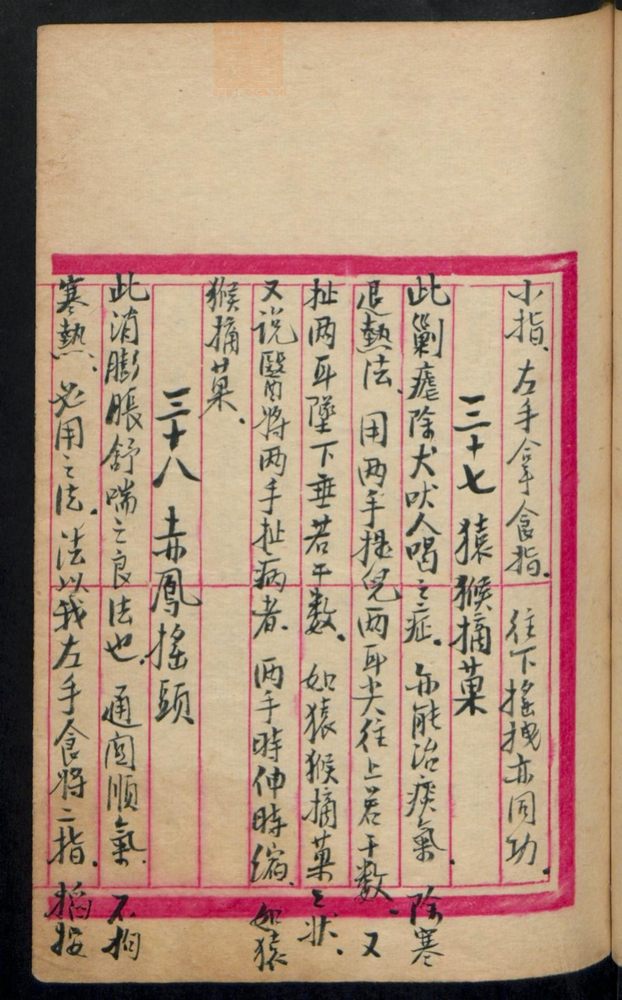 小指、左手拿食指、往下摇拽亦同功、
三十七 猿猴摘菓
此剿瘧除犬吠人喝之症、亦能治痰氣、除寒
退熱法、用两手提兒两耳尖往上若干數、又
扯两耳墜下垂若干數、如猿猴摘菓之狀、
又说醫將两手扯病者、两手時伸時缩、如猿
猴摘菓、
三十八 赤鳳摇頭
此消膨脹舒喘之良法也、通関順氣、不拘
寒熱、必用之法、法以我左手食將二指、掐按